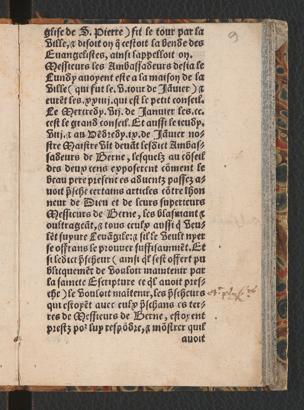 9
glise de S. Pierre) fit le tour par la
ville, & disoit on q̃ cestoit la bende des
Euangelistes, ainsi lappelloit on.
Messieurs les Ambassadeurs desia le
Lundy auoyent este a la maison de la
ville (qui fut le .v. iour de Iãuier) &
eurẽt les .xxiiij. qui est le petit conseil.
Le Mercredy .vij. de Ianuier les .cc.
est le grand conseil. Et aussi le ieudy.
viij. & au Vẽdredy .ix. de Iãuier no-
stre Maistre vit deuãt lesdict Ambas-
sadeurs de Berne, lesquelz au cõseil
des deux cens exposerent cõment le
beau pere present es aduentz passez a-
uoit p̃sche certains articles cõtre lhon
neur de Dieu et de leurs superieurs
Messieurs de Berne, les blasmant &
oultrageãt, & tous ceulx aussi q̃ veu-
lẽt suyure Leuãgile: & sil le veult nyer
se offrans le prouuer suffisammẽt. Et
si ledict p̃scheur (ainsi ql sest offert pu
bliquemẽt de vouloir maintenir par
la saincte Escripture ce ql auoit pres-
che) le vouloit maitenir, les p̃scheurs
qui estoyẽt auec eulx p̃schans es ter-
res de Messieurs de Berne, estoyent
prestz por̃ luy respõdre, & mõstrer quil
auoit